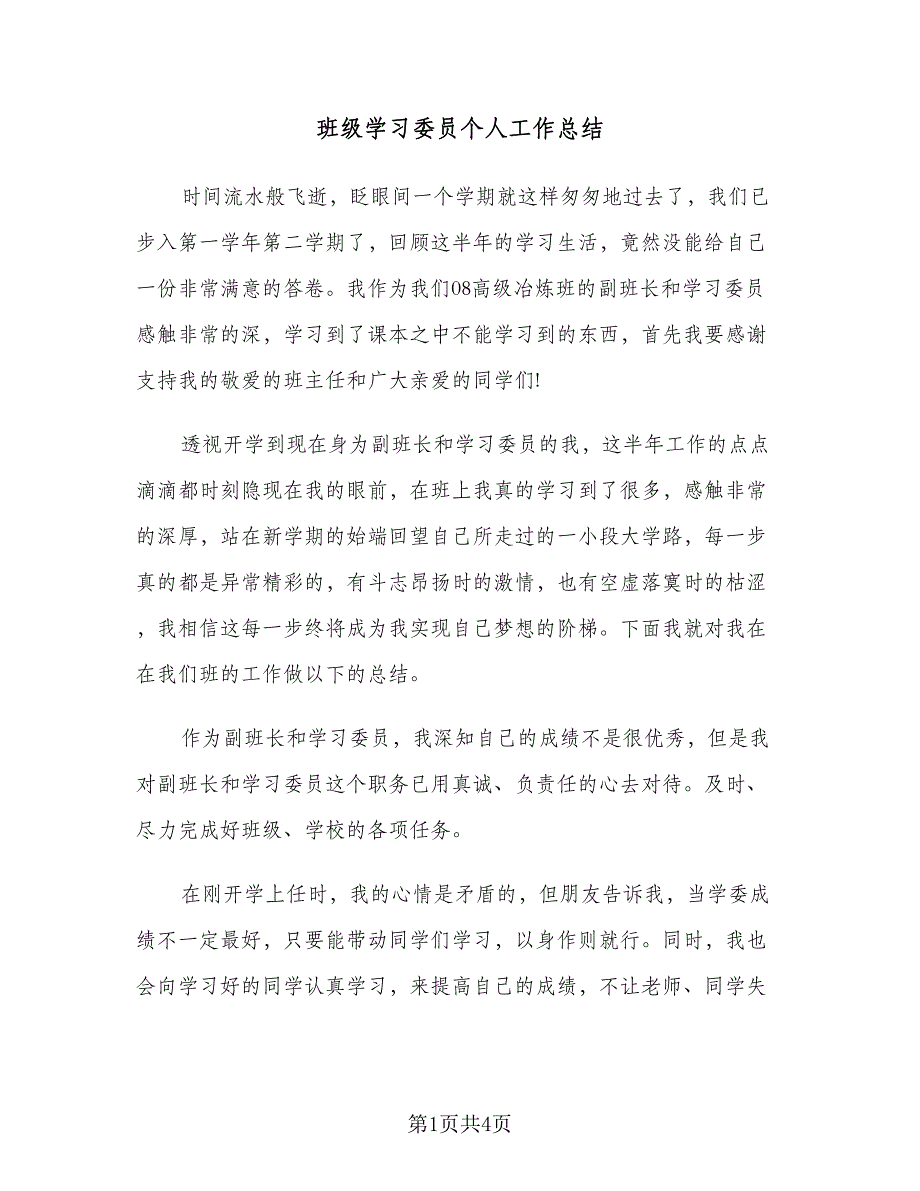 班级学习委员个人工作总结
时间流水般飞逝，眨眼间一个学期就这样匆匆地过去了，我们已
步入第一学年第二学期了，回顾这半年的学习生活，竟然没能给自己
一份非常满意的答卷。我作为我们08高级冶炼班的副班长和学习委员
感触非常的深，学习到了课本之中不能学习到的东西，首先我要感谢
支持我的敬爱的班主任和广大亲爱的同学们!
透视开学到现在身为副班长和学习委员的我，这半年工作的点点
滴滴都时刻隐现在我的眼前，在班上我真的学习到了很多，感触非常
的深厚，站在新学期的始端回望自己所走过的一小段大学路，每一步
真的都是异常精彩的，有斗志昂扬时的激情，也有空虚落寞时的枯涩
，我相信这每一步终将成为我实现自己梦想的阶梯。下面我就对我在
在我们班的工作做以下的总结。
作为副班长和学习委员，我深知自己的成绩不是很优秀，但是我
对副班长和学习委员这个职务已用真诚、负责任的心去对待。及时、
尽力完成好班级、学校的各项任务。
在刚开学上任时，我的心情是矛盾的，但朋友告诉我，当学委成
绩不一定最好，只要能带动同学们学习，以身作则就行。同时，我也
会向学习好的同学认真学习，来提高自己的成绩，不让老师、同学失
第1页共4页